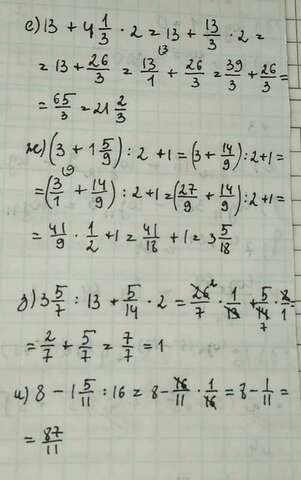 е) 13 + 4 1/3 · 2 = 13 + 13/3 · 2 =
= 13 + 26/3 = 13/1 + 26/3 = 39/3 + 26/3 =
= 65/3 = 21 2/3
ж) (3 + 1 5/9) : 2 + 1 = (3 + 14/9) : 2 + 1 =
= (3/1 + 14/9) : 2 + 1 = (27/9 + 14/9) : 2 + 1 =
= 41/9 · 1/2 + 1 = 41/18 + 1 = 3 5/18
з) 3 5/7 : 13 + 5/14 · 2 = 26/7 · 1/13 + 5/14 · 2/1 =
= 2/7 + 5/7 = 7/7 = 1
и) 8 - 1 5/11 : 16 = 8 - 16/11 · 1/16 = 8 - 1/11 =
= 87/11